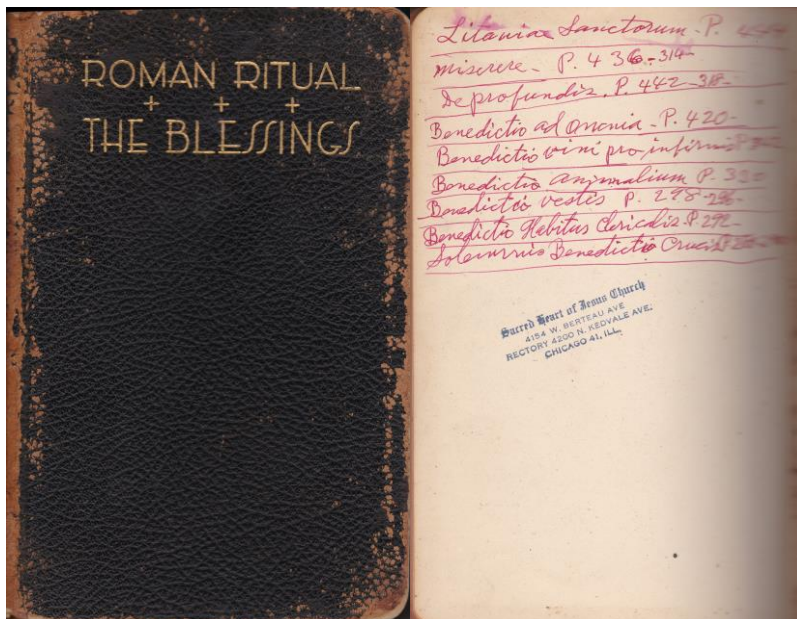 ROMAN RITUAL
+ + +
THE BLESSINGS
Litaniae Sanctorum - P.
Miserere - P. 436 - 314
De profundis. P. 442 - 318 -
Benedictio ad omnia - P. 420 -
Benedictio vini pro infirmis P.
Benedictio animalium P. 330
Benedictio vestis P. 298 - 296 -
Benedictio Habitus Clericalis P. 292 -
Solemnis Benedictio Crucis P.
Sacred Heart of Jesus Church
4154 W. BERTEAU AVE
RECTORY 4200 N. KEDVALE AVE.
CHICAGO 41, ILL.